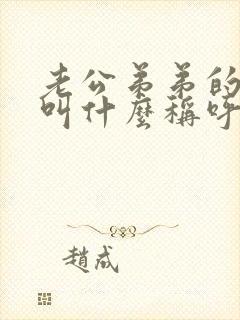 老公弟弟的
叫什麼稱呼
趙成